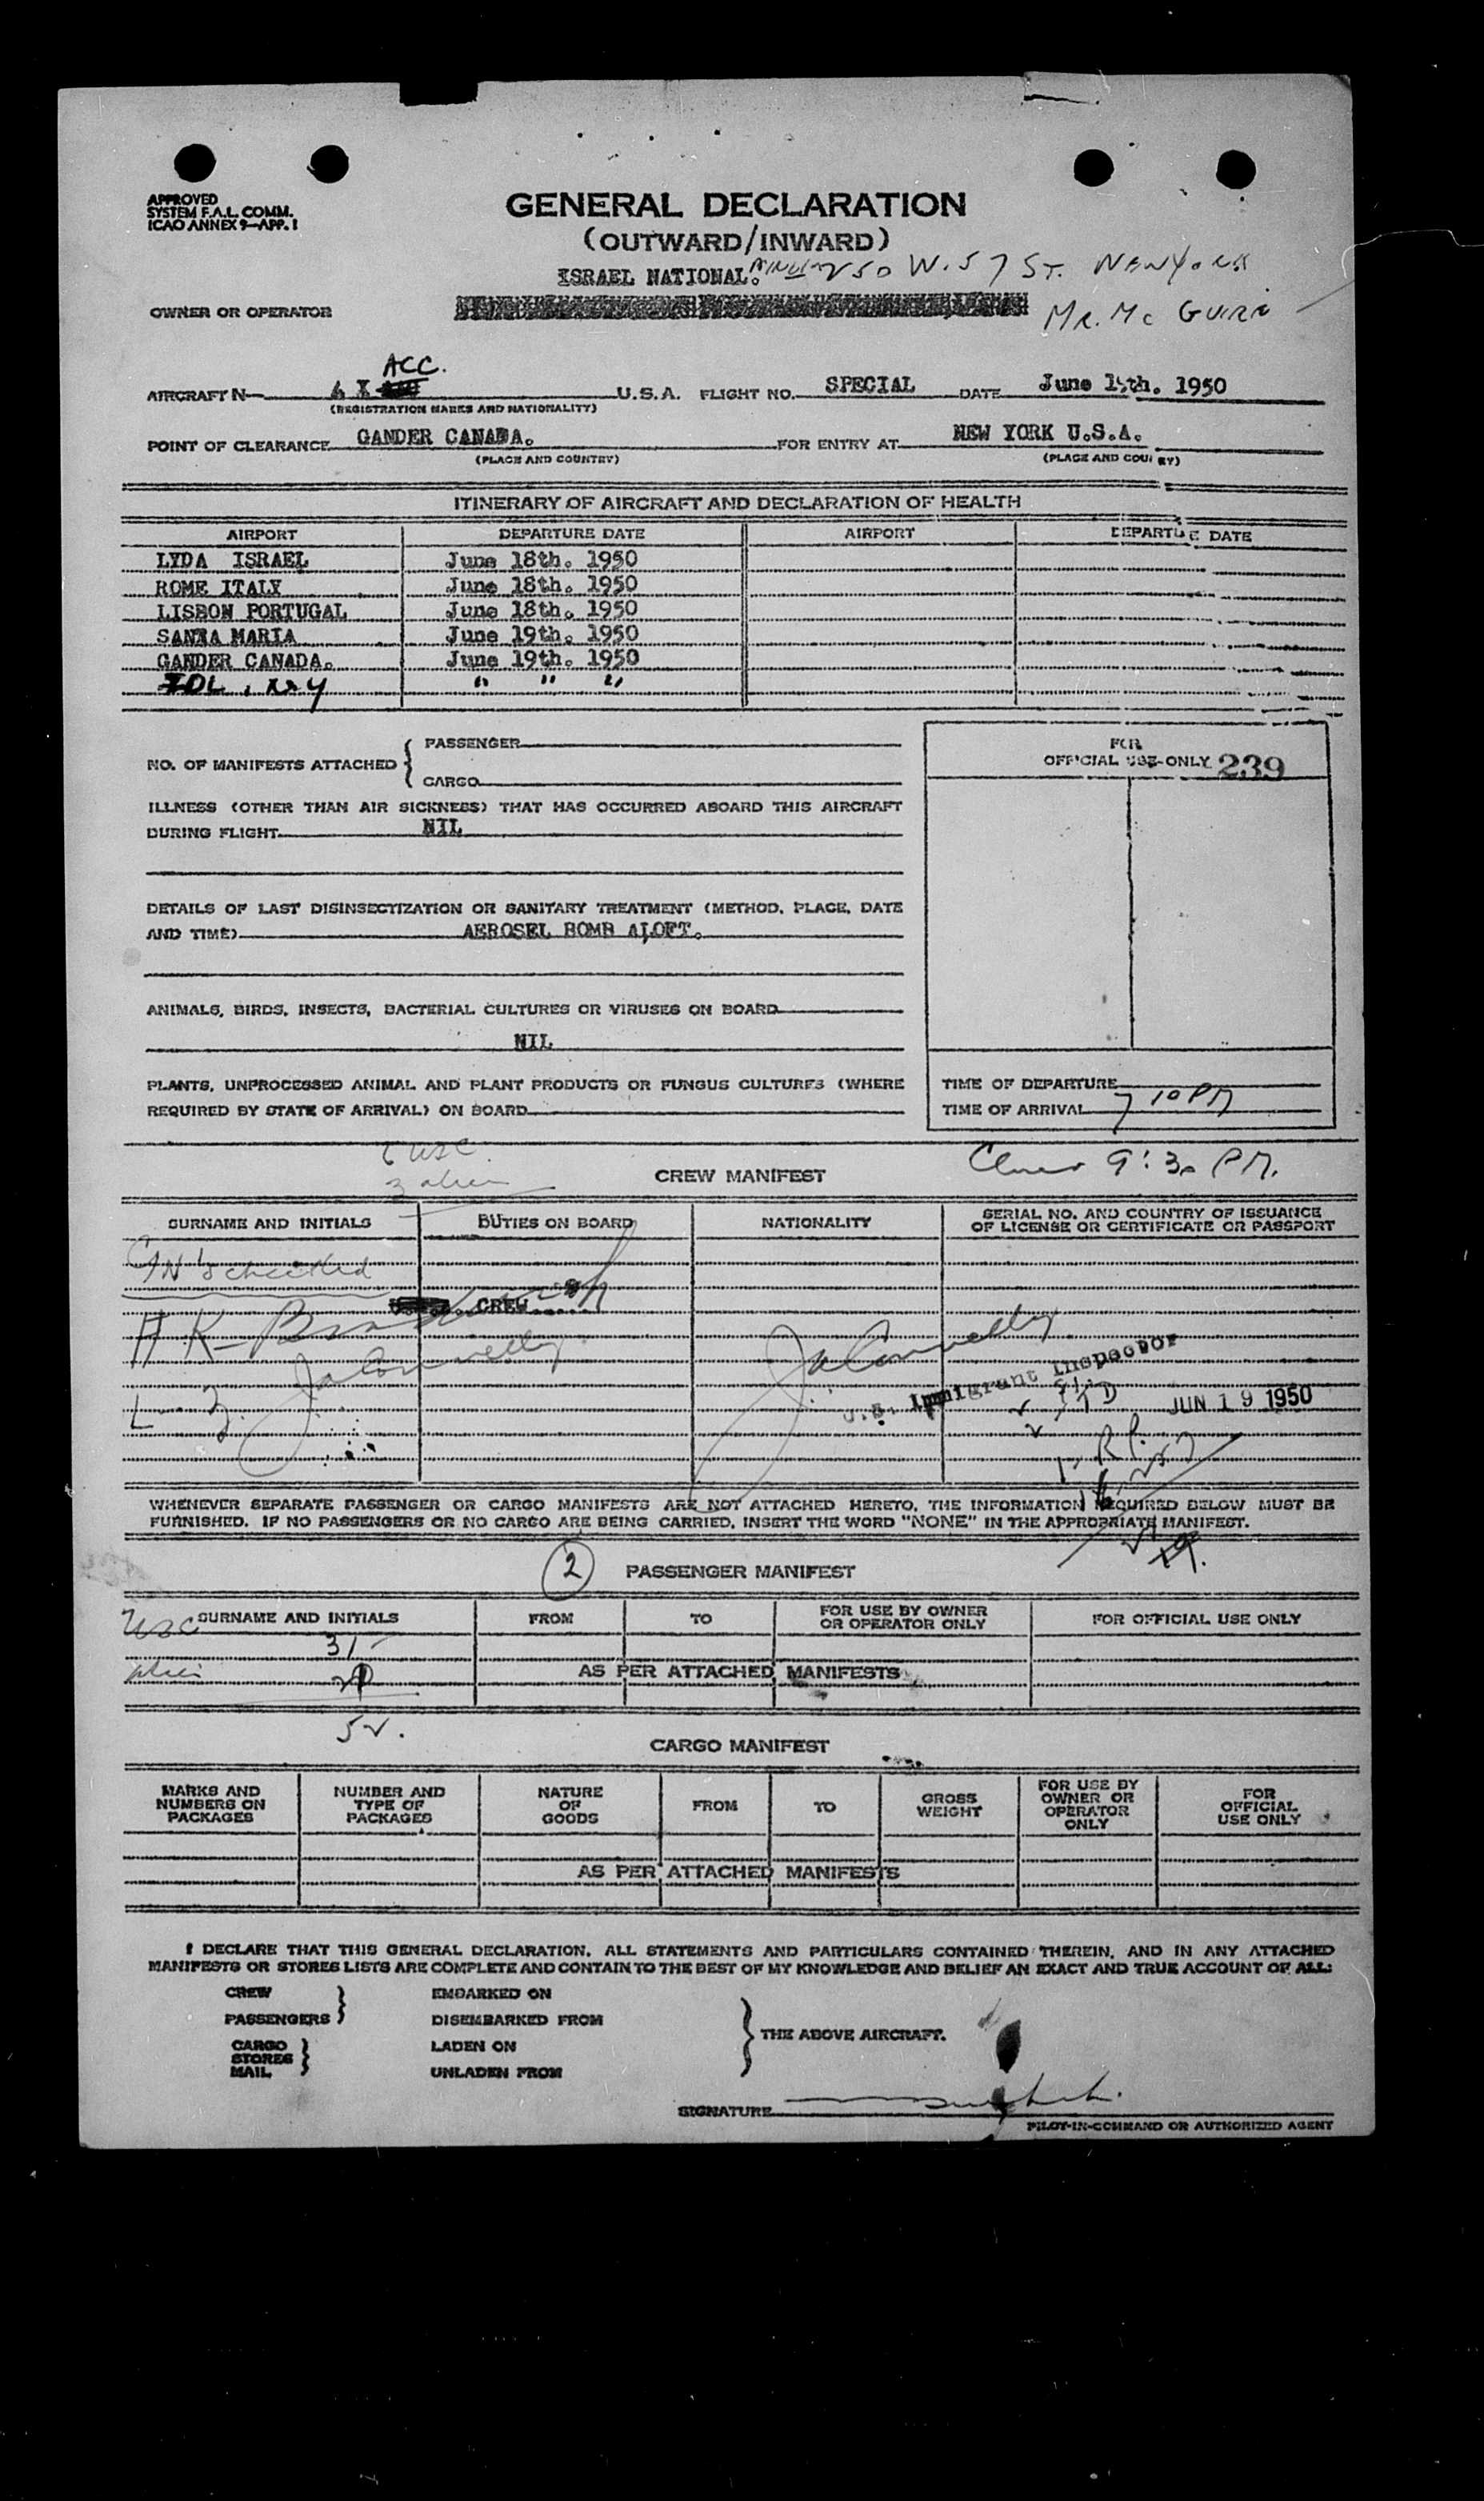 APPROVED
SYSTEM F.A.L. COMM.
ICAO ANNEX 9-APP. I
GENERAL DECLARATION
(OUTWARD/INWARD)
ISRAEL NATIONAL. 250 W. 57 ST. NEW YORK
OWNER OR OPERATOR
MR. MC GUIRE
ACC.
AIRCRAFT N 4 X U.S.A. FLIGHT NO. SPECIAL DATE June 19th. 1950
(REGISTRATION MARKS AND NATIONALITY)
POINT OF CLEARANCE GANDER CANADA. FOR ENTRY AT NEW YORK U.S.A.
(PLACE AND COUNTRY) (PLACE AND COUNTRY)
ITINERARY OF AIRCRAFT AND DECLARATION OF HEALTH
AIRPORT DEPARTURE DATE AIRPORT DEPARTURE DATE
LYDA ISRAEL June 18th. 1950
ROME ITALY June 18th. 1950
LISBON PORTUGAL June 18th. 1950
SANTA MARIA June 19th. 1950
GANDER CANADA. June 19th. 1950
IDL, NY " " "
NO. OF MANIFESTS ATTACHED { PASSENGER
CARGO
FOR
OFFICIAL USE ONLY 239
ILLNESS (OTHER THAN AIR SICKNESS) THAT HAS OCCURRED ABOARD THIS AIRCRAFT
DURING FLIGHT NIL
DETAILS OF LAST DISINSECTIZATION OR SANITARY TREATMENT (METHOD, PLACE, DATE
AND TIME) AEROSEL BOMB ALOFT.
ANIMALS, BIRDS, INSECTS, BACTERIAL CULTURES OR VIRUSES ON BOARD
NIL
PLANTS, UNPROCESSED ANIMAL AND PLANT PRODUCTS OR FUNGUS CULTURES (WHERE
REQUIRED BY STATE OF ARRIVAL) ON BOARD
TIME OF DEPARTURE
TIME OF ARRIVAL 7 10 PM
6 USC
3 alien
CREW MANIFEST
9:30 PM.
SURNAME AND INITIALS DUTIES ON BOARD NATIONALITY SERIAL NO. AND COUNTRY OF ISSUANCE
OF LICENSE OR CERTIFICATE OR PASSPORT
checked
CREW
J. A. Connelly J. A. Connelly
U.S. Immigrant Inspector
JUN 19 1950
WHENEVER SEPARATE PASSENGER OR CARGO MANIFESTS ARE NOT ATTACHED HERETO, THE INFORMATION REQUIRED BELOW MUST BE
FURNISHED. IF NO PASSENGERS OR NO CARGO ARE BEING CARRIED, INSERT THE WORD "NONE" IN THE APPROPRIATE MANIFEST.
2 PASSENGER MANIFEST
USC SURNAME AND INITIALS FROM TO FOR USE BY OWNER
OR OPERATOR ONLY FOR OFFICIAL USE ONLY
31
alien 21 AS PER ATTACHED MANIFESTS
52.
CARGO MANIFEST
MARKS AND
NUMBERS ON
PACKAGES
NUMBER AND
TYPE OF
PACKAGES
NATURE
OF
GOODS
FROM
TO
GROSS
WEIGHT
FOR USE BY
OWNER OR
OPERATOR
ONLY
FOR
OFFICIAL
USE ONLY
AS PER ATTACHED MANIFESTS
I DECLARE THAT THIS GENERAL DECLARATION, ALL STATEMENTS AND PARTICULARS CONTAINED THEREIN, AND IN ANY ATTACHED
MANIFESTS OR STORES LISTS ARE COMPLETE AND CONTAIN TO THE BEST OF MY KNOWLEDGE AND BELIEF AN EXACT AND TRUE ACCOUNT OF ALL:
CREW } EMBARKED ON
PASSENGERS DISEMBARKED FROM
} THE ABOVE AIRCRAFT.
CARGO LADEN ON
STORES }
MAIL UNLADEN FROM
SIGNATURE
PILOT-IN-COMMAND OR AUTHORIZED AGENT